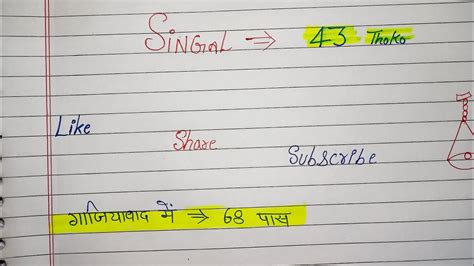 SINGAL ⇒ 43 Thoko
Like
Share
Subscribe
गाजियावाद में ⇒ 68 पास